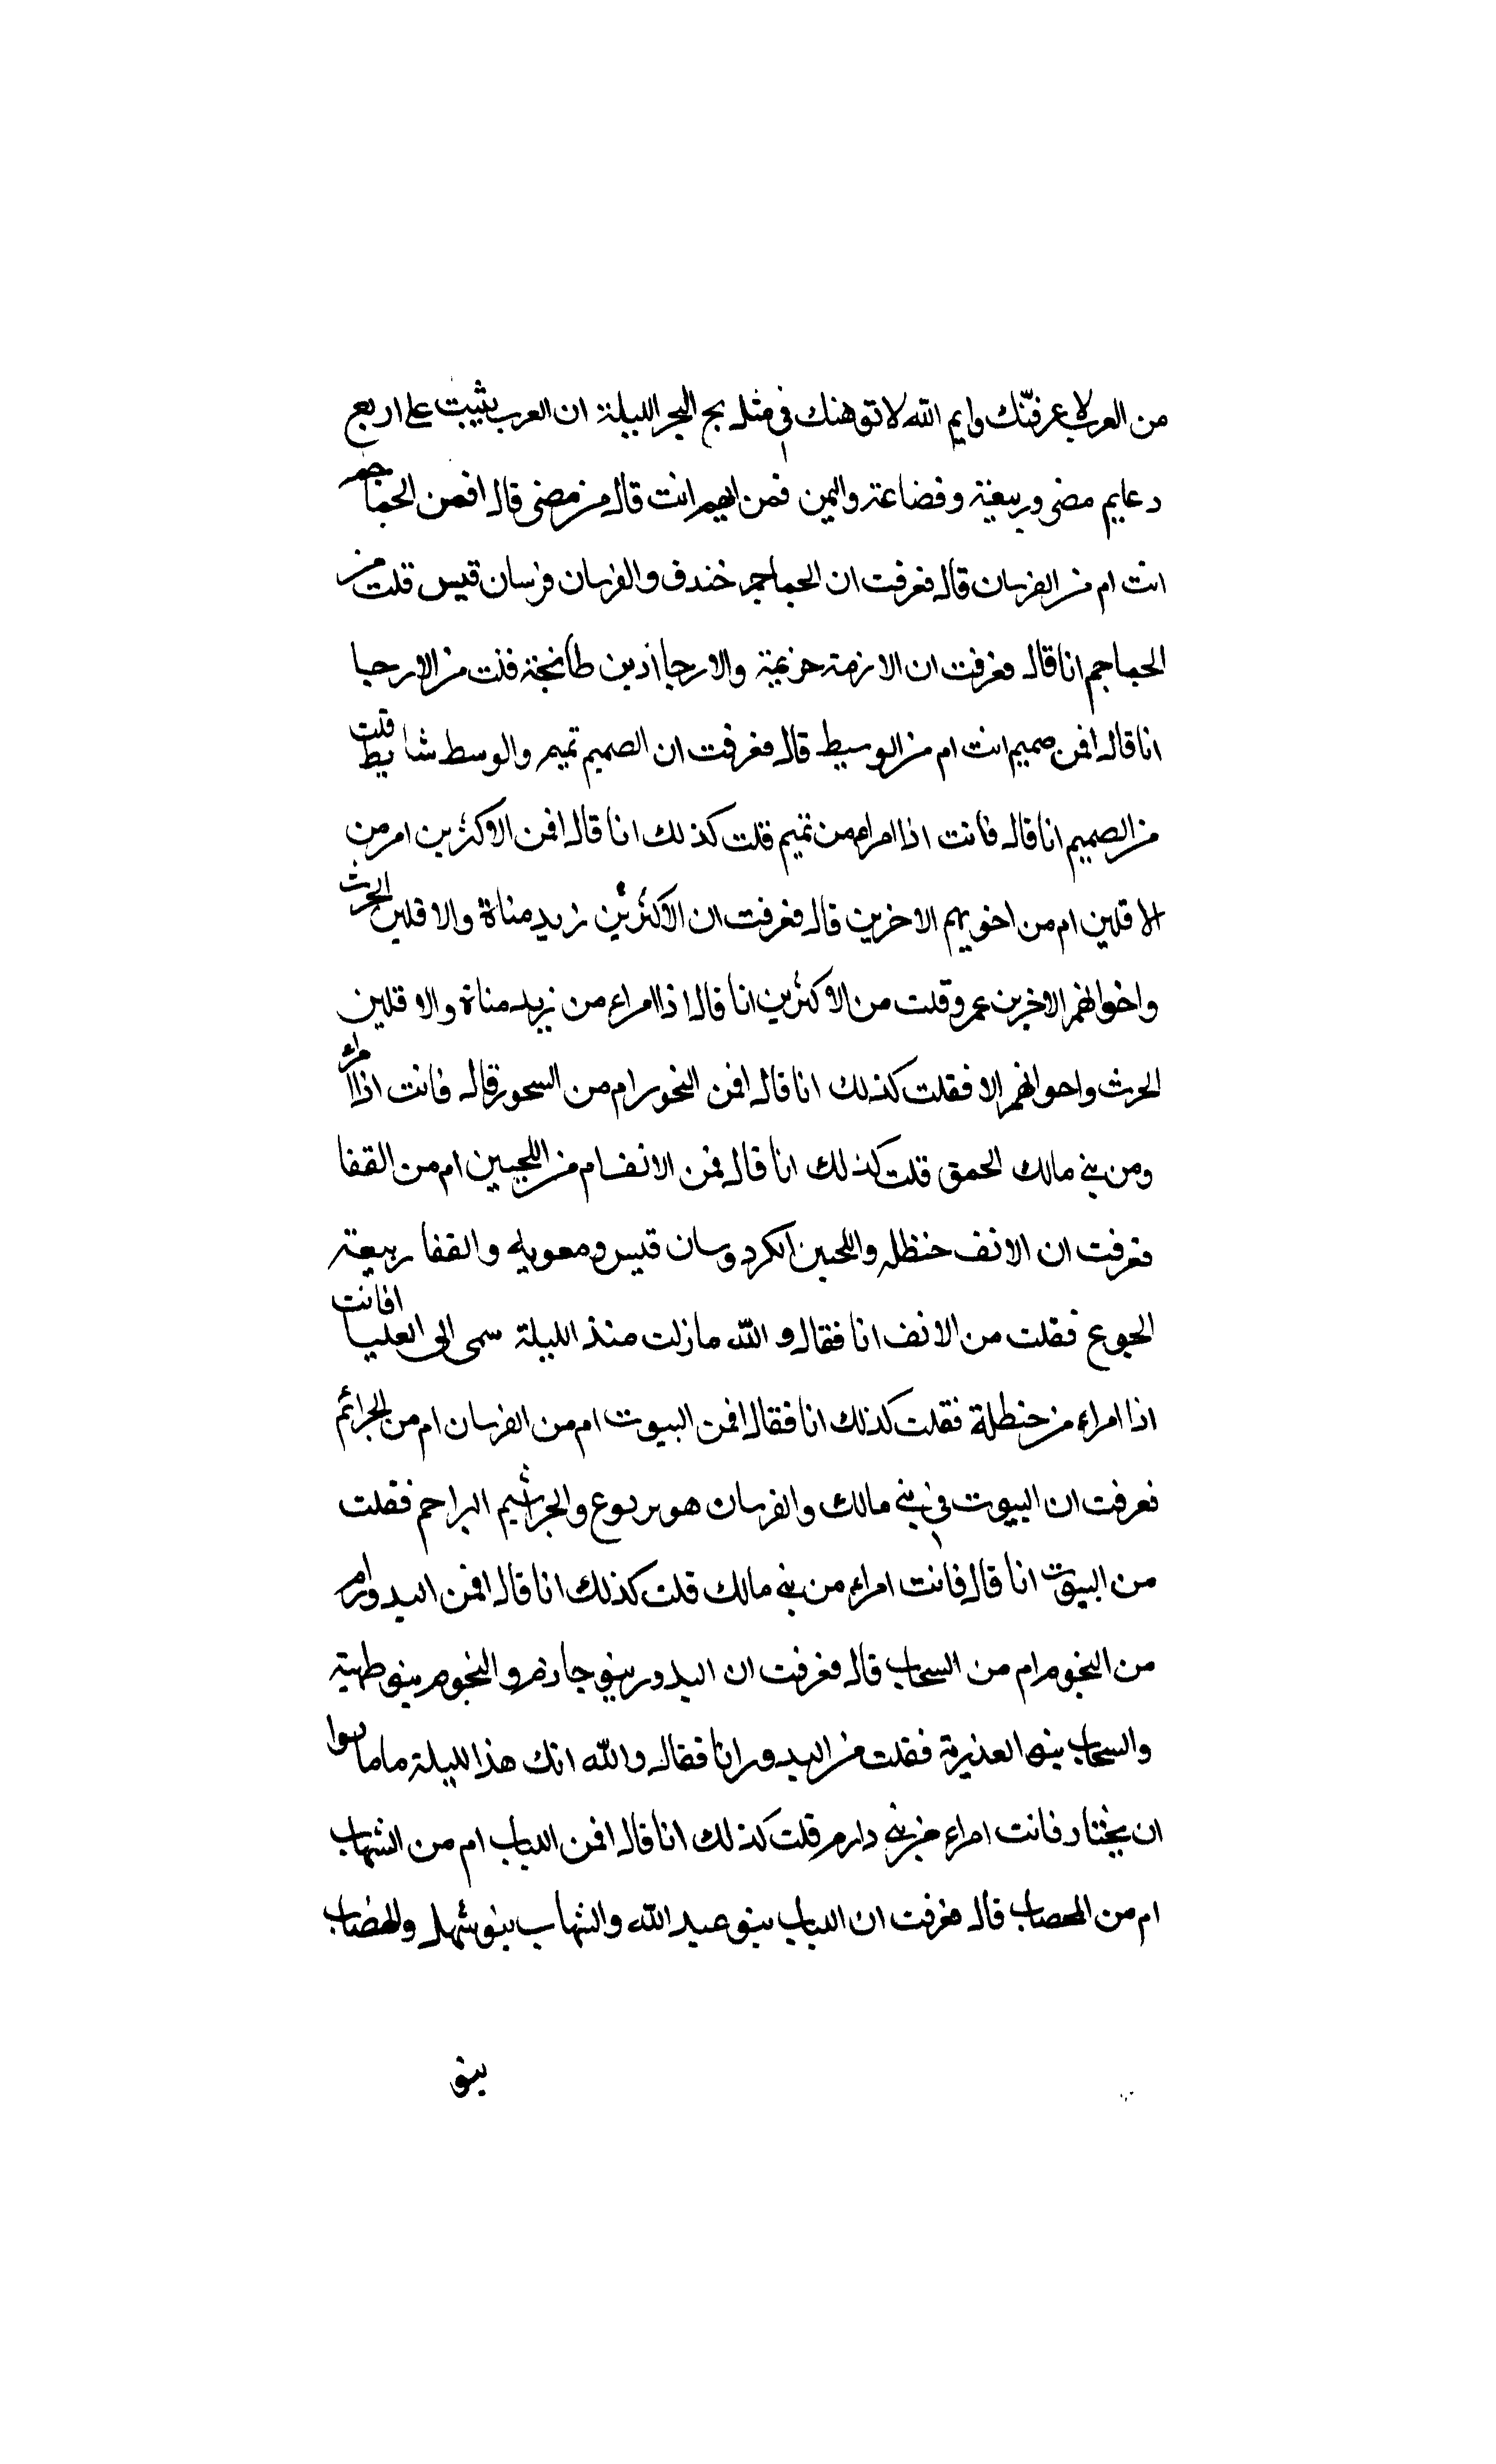 من العرب لاعرفنّك وايم الله لاتوهنك في مثل بج البحر الليلة ان العرب بثيبت على اربع
دعايم مضى وربيغة وفضاعة واليمن فمن ايهم انت قال من مضى قال افمن الجماجم
انت ام من الفرسان قال فعرفت ان الجماجم خندف والفرسان فرسان قيس قلت من
الجماجم انا قال فعرفت ان الازمة خزيمة والارحا اذبن طانجة قلت من الارحا
انا قال افمن صميم انت ام من الوسيط قال فعرفت ان الصميم تميم والوسط شايط قلت
من الصميم انا قال فانت اذا امراء من تميم قلت كذلك انا قال افمن الاكثرين ام من
الاقلين ام من اخويهم الاخرين قال فعرفت ان الاكثرين زيد مناة والاقلين الحرث
واخوانهم الاخرين عمر وقلت من الاكثرين انا قال اذا امراء من زيد مناة والاقلين
الحرث واخوانهم الا فقلت كذلك انا قال افمن النحور ام من السحور قال فانت اذا امرء
ومن بني مالك الحمق قلت كذلك انا قال فمن الانف ام من اللحيين ام من القفا
فعرفت ان الانف حنظله واللحين الكردوسان قيس ومعويه والقفا ربيعة
الجوع فقلت من الانف انا فقال و الله مازلت منذ الليلة سمى الى العليا افانت
اذا امراء من حنطلة فقلت كذلك انا فقال افمن البيوت ام من الفرسان ام من الجراثم
فعرفت ان البيوت في بني مالك والفرسان هو يربوع والجراثيم البراحم فقلت
من البيوت انا قال فانت امراء من بني مالك قلت كذلك انا قال افمن البدور ام
من النجوم ام من السحاب قال فعرفت ان البدور بينو جارنم والنجوم بينو طهية
والسحاب بينو العذيرة فقلت من البدور انا فقال والله انك هذا لليلة ماما
ان يختار فانت امراء من بني دارم قلت كذلك انا قال افمن اللباب ام من الشهاب
ام من الهصاب قال فعرفت ان اللباب بينو عبد الله والشهاب بينو شهل والهضاب
بينو